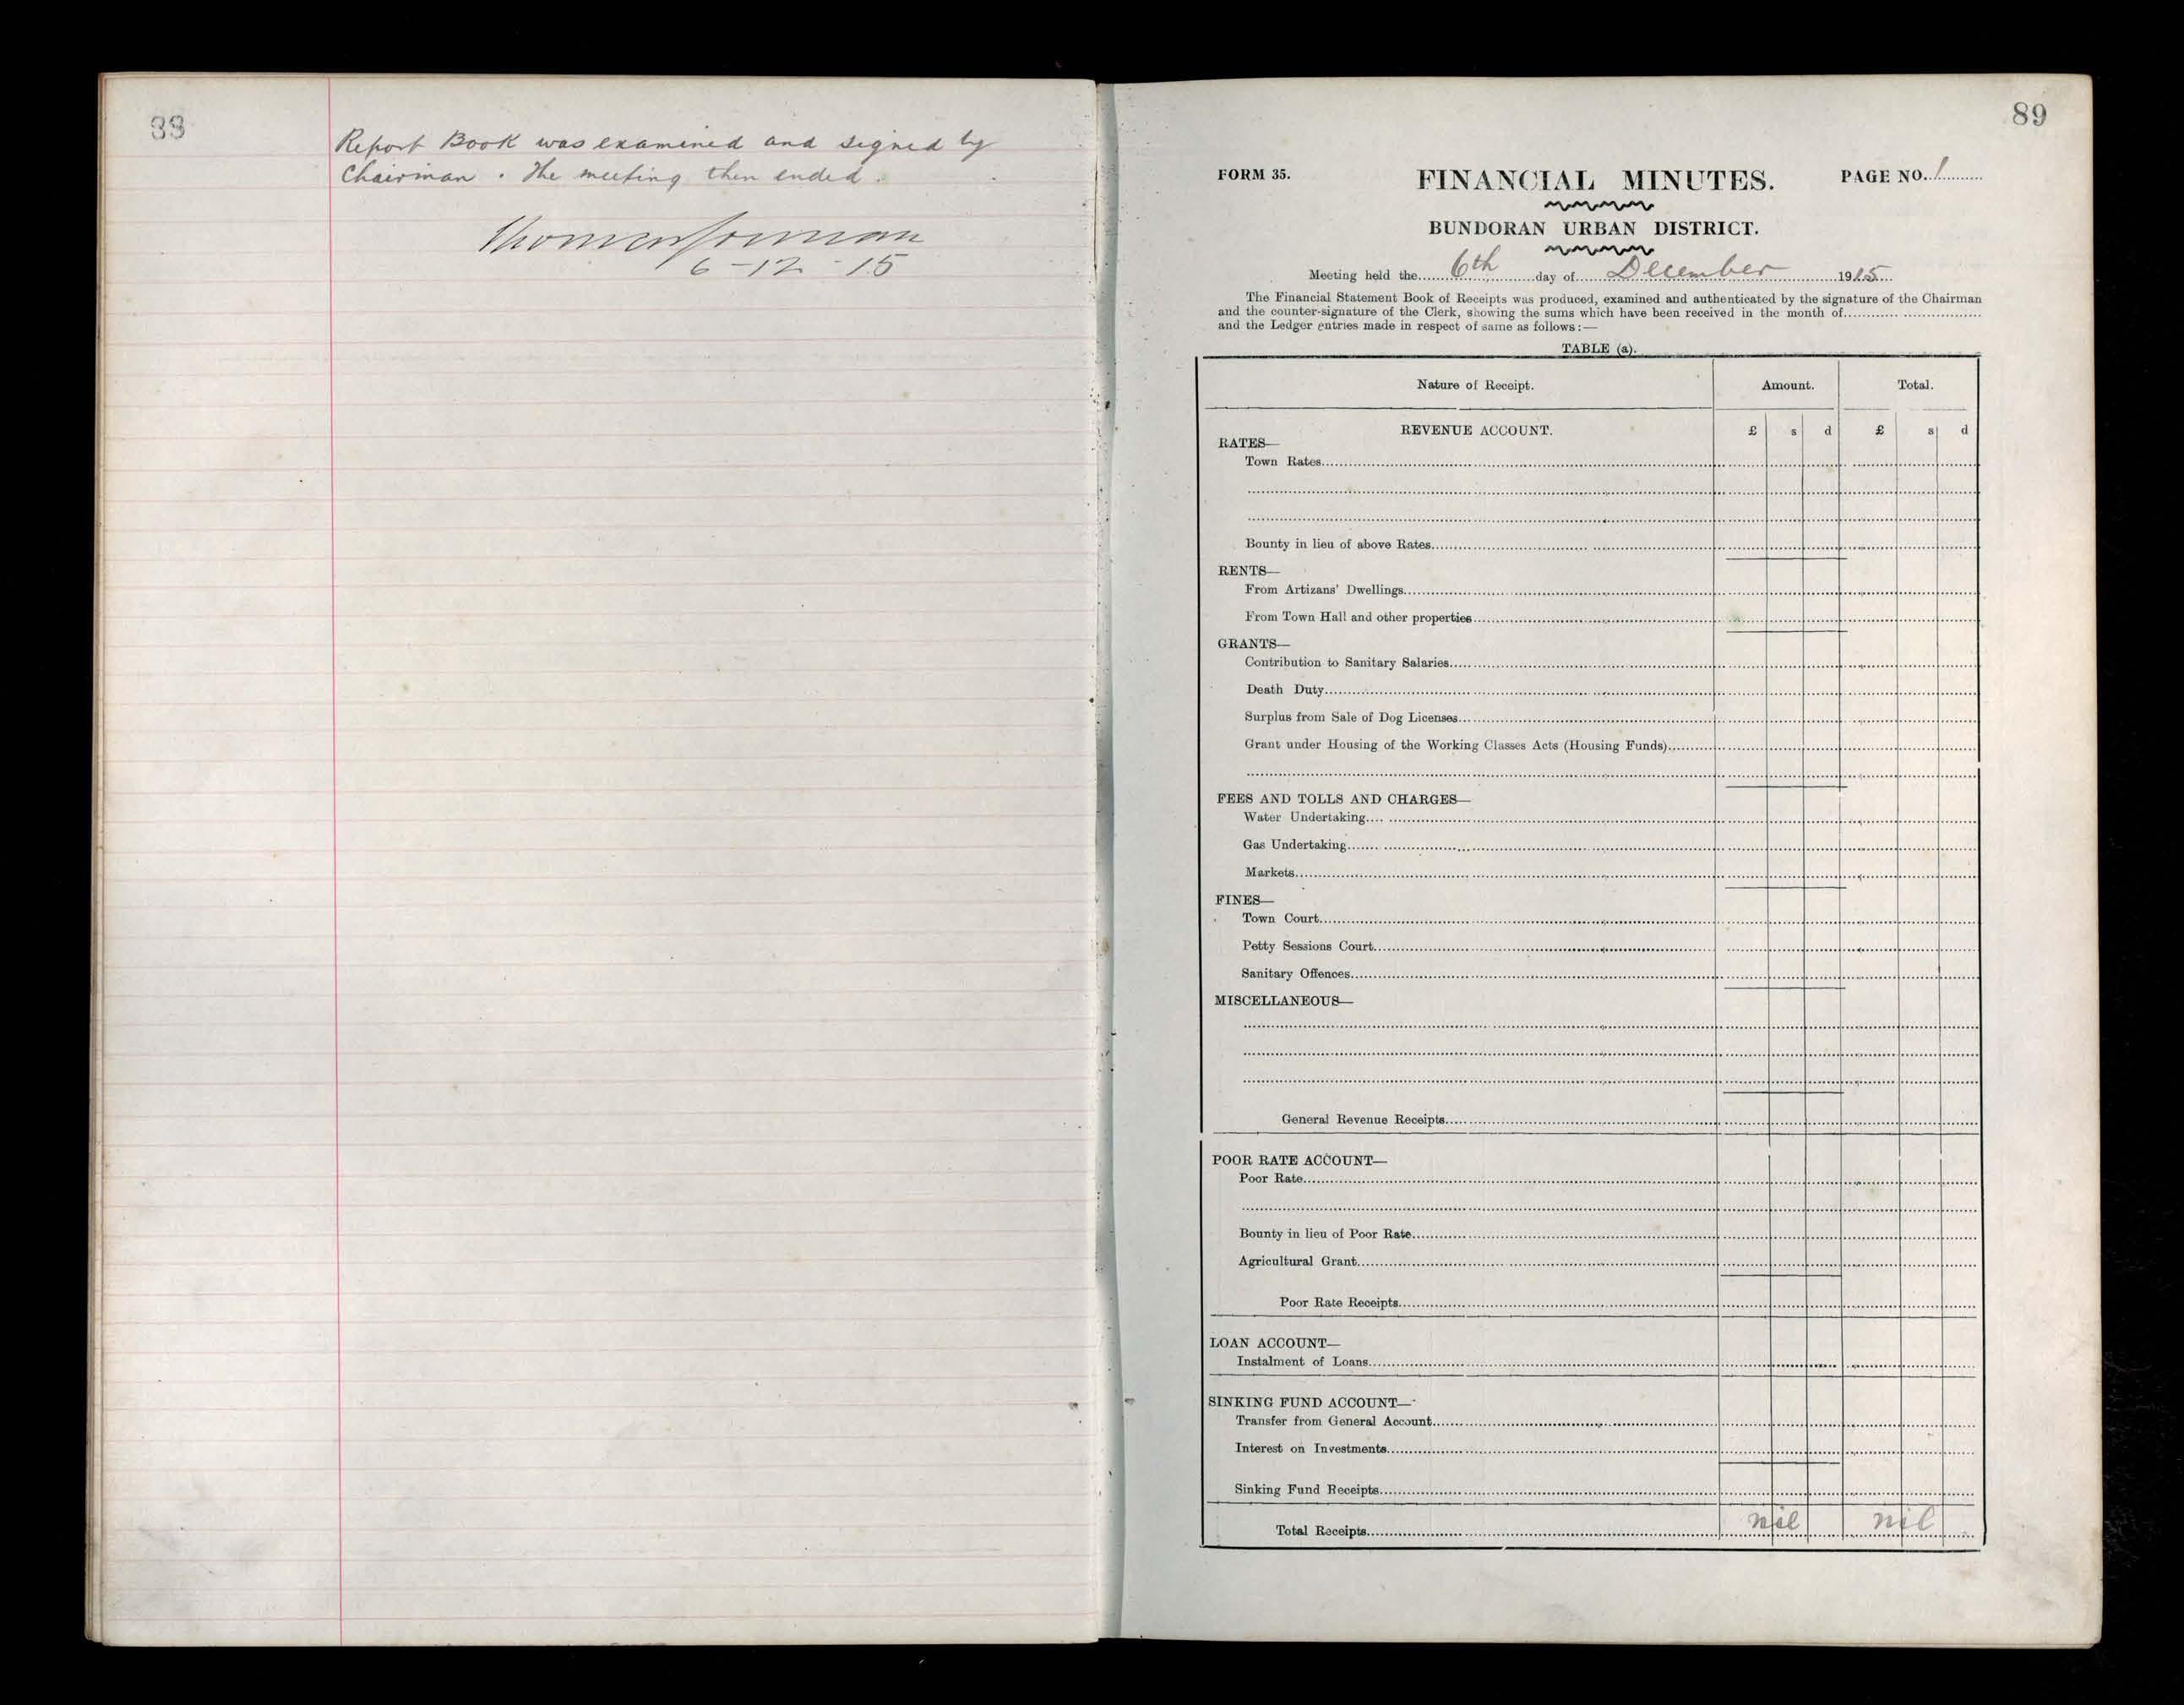 88
Report Book was examined and signed by
Chairman. The meeting then ended.
Thomas Gorman
6-12-15
89
FORM 35.
FINANCIAL MINUTES.
PAGE NO. 1
BUNDORAN URBAN DISTRICT.
Meeting held the 6th day of December 1915
The Financial Statement Book of Receipts was produced, examined and authenticated by the signature of the Chairman
and the counter-signature of the Clerk, showing the sums which have been received in the month of
and the Ledger entries made in respect of same as follows:—
TABLE (a).
Nature of Receipt. Amount. Total.
REVENUE ACCOUNT. £ s d £ s d
RATES—
Town Rates
Bounty in lieu of above Rates
RENTS—
From Artizans' Dwellings
From Town Hall and other properties
GRANTS—
Contribution to Sanitary Salaries
Death Duty
Surplus from Sale of Dog Licenses
Grant under Housing of the Working Classes Acts (Housing Funds)
FEES AND TOLLS AND CHARGES—
Water Undertaking
Gas Undertaking
Markets
FINES—
Town Court
Petty Sessions Court
Sanitary Offences
MISCELLANEOUS—
General Revenue Receipts
POOR RATE ACCOUNT—
Poor Rate
Bounty in lieu of Poor Rate
Agricultural Grant
Poor Rate Receipts
LOAN ACCOUNT—
Instalment of Loans
SINKING FUND ACCOUNT—
Transfer from General Account
Interest on Investments
Sinking Fund Receipts
Total Receipts nil nil